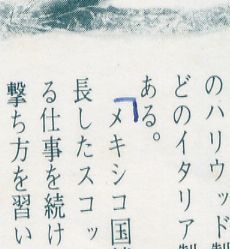 のハリウッド製
どのイタリア製
ある。
メキシコ国
長したスコッ
る仕事を続け
撃ち方を習い